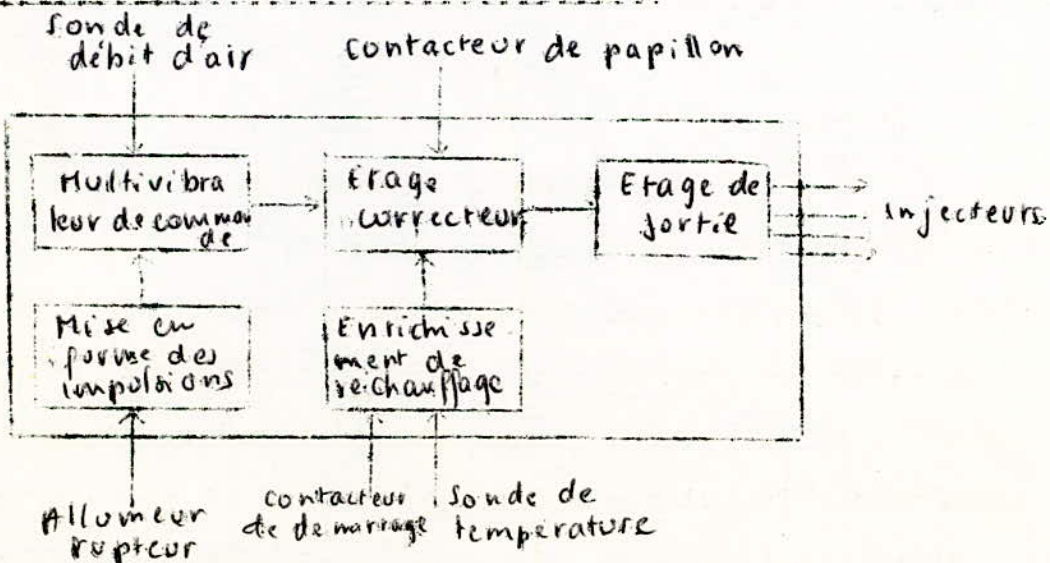 Sonde de
débit d'air
contacteur de papillon
Multivibra
teur de comman
de
Etage
correcteur
Etage de
sortie
injecteurs
Mise en
forme des
impulsions
Enrichisse
ment de
réchauffage
Allumeur
rupteur
contacteur
de demarrage
Sonde de
température